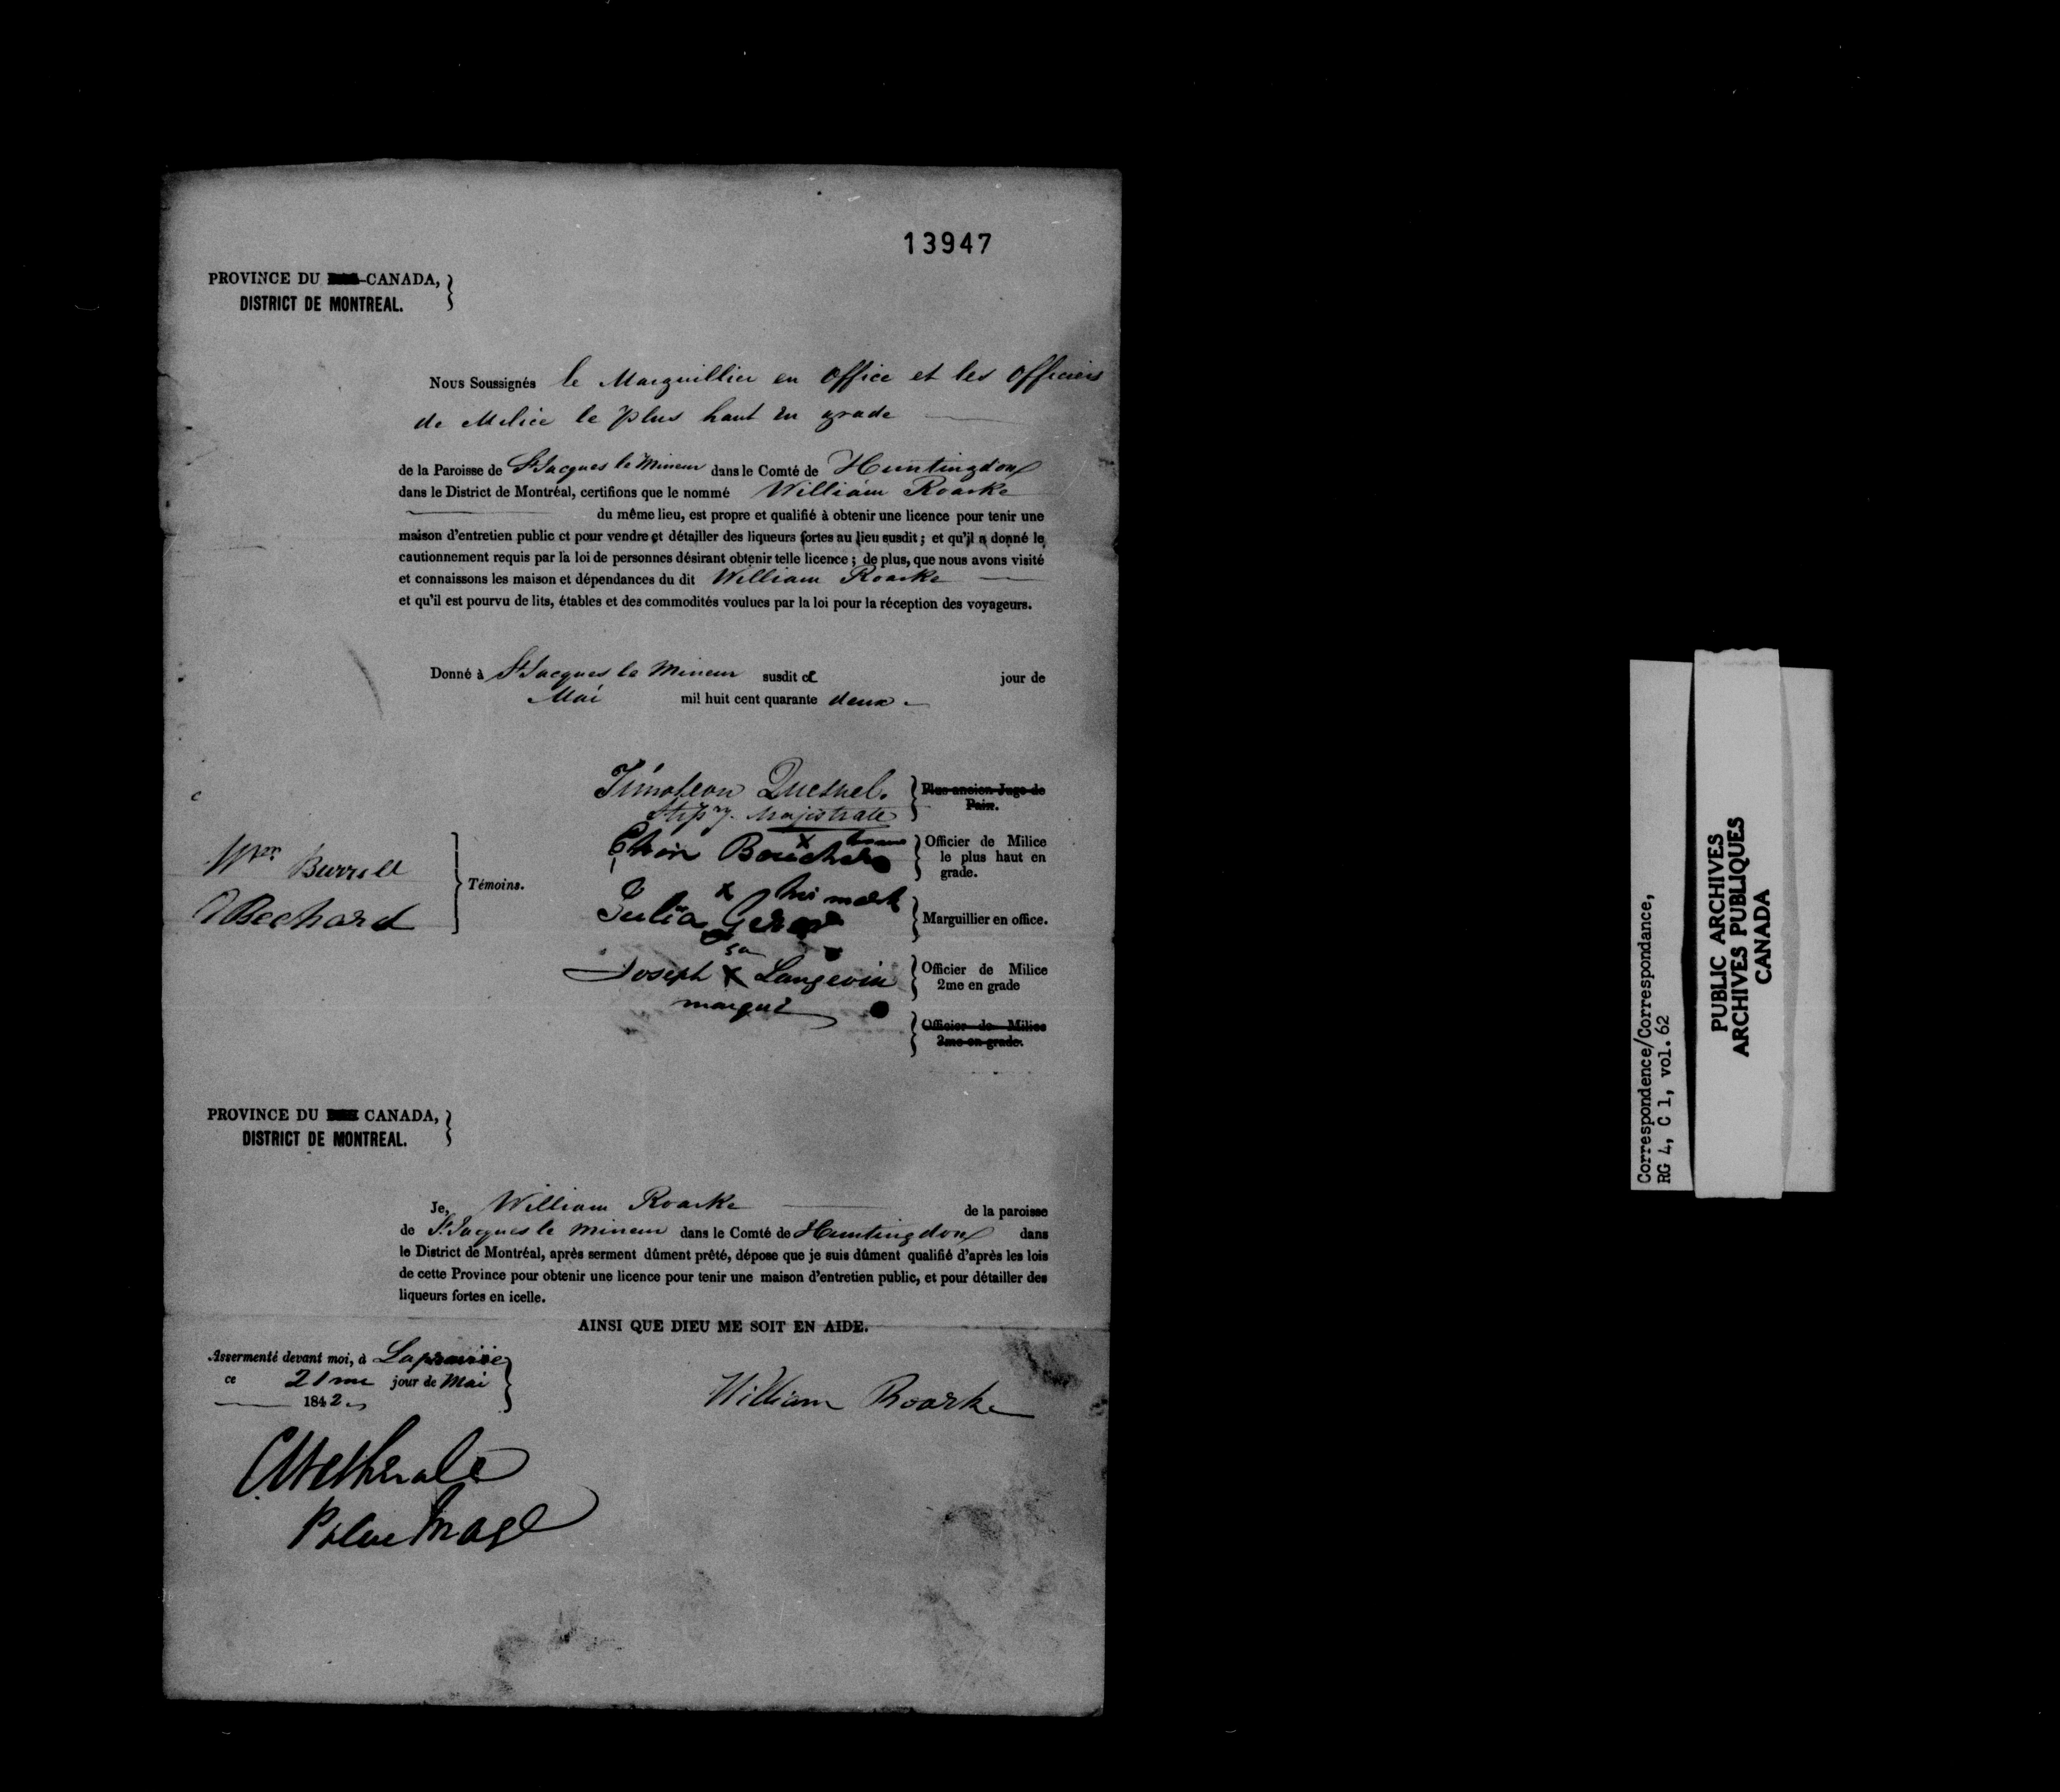 13947
PROVINCE DU CANADA,
DISTRICT DE MONTREAL.
Nous Soussignés le Marguillier en Office et les Officiers
de Milice le plus haut en grade
de la Paroisse de St Jacques le Mineur dans le Comté de Huntingdon
dans le District de Montréal, certifions que le nommé William Roarke
du même lieu, est propre et qualifié à obtenir une licence pour tenir une
maison d'entretien public et pour vendre et détailler des liqueurs fortes au lieu susdit ; et qu'il a donné le
cautionnement requis par la loi de personnes désirant obtenir telle licence ; de plus, que nous avons visité
et connaissons les maison et dépendances du dit William Roarke
et qu'il est pourvu de lits, étables et des commodités voulues par la loi pour la réception des voyageurs.
Donné à St Jacques le Mineur susdit ce jour de
Mai mil huit cent quarante deux
Timoleon Quesnel. Plus ancien Juge de
Stipry. Majistrate Paix.
x Officier de Milice
le plus haut en
grade.
Wm Burrell
Témoins.
Bechard
x his mark
Julia Marguillier en office.
sa
Joseph x Langevin Officier de Milice
marque 2me en grade
Officier de Milice
3me en grade.
PROVINCE DU CANADA,
DISTRICT DE MONTREAL.
Je, William Roarke de la paroisse
de St. Jacques le Mineur dans le Comté de Huntingdon dans
le District de Montréal, après serment dûment prêté, dépose que je suis dûment qualifié d'après les lois
de cette Province pour obtenir une licence pour tenir une maison d'entretien public, et pour détailler des
liqueurs fortes en icelle.
AINSI QUE DIEU ME SOIT EN AIDE.
Assermenté devant moi, à Laprairie
ce 21me jour de Mai
1842
William Roarke
Police Mage
Correspondence/Correspondance,
RG 4, C 1, vol. 62
PUBLIC ARCHIVES
ARCHIVES PUBLIQUES
CANADA